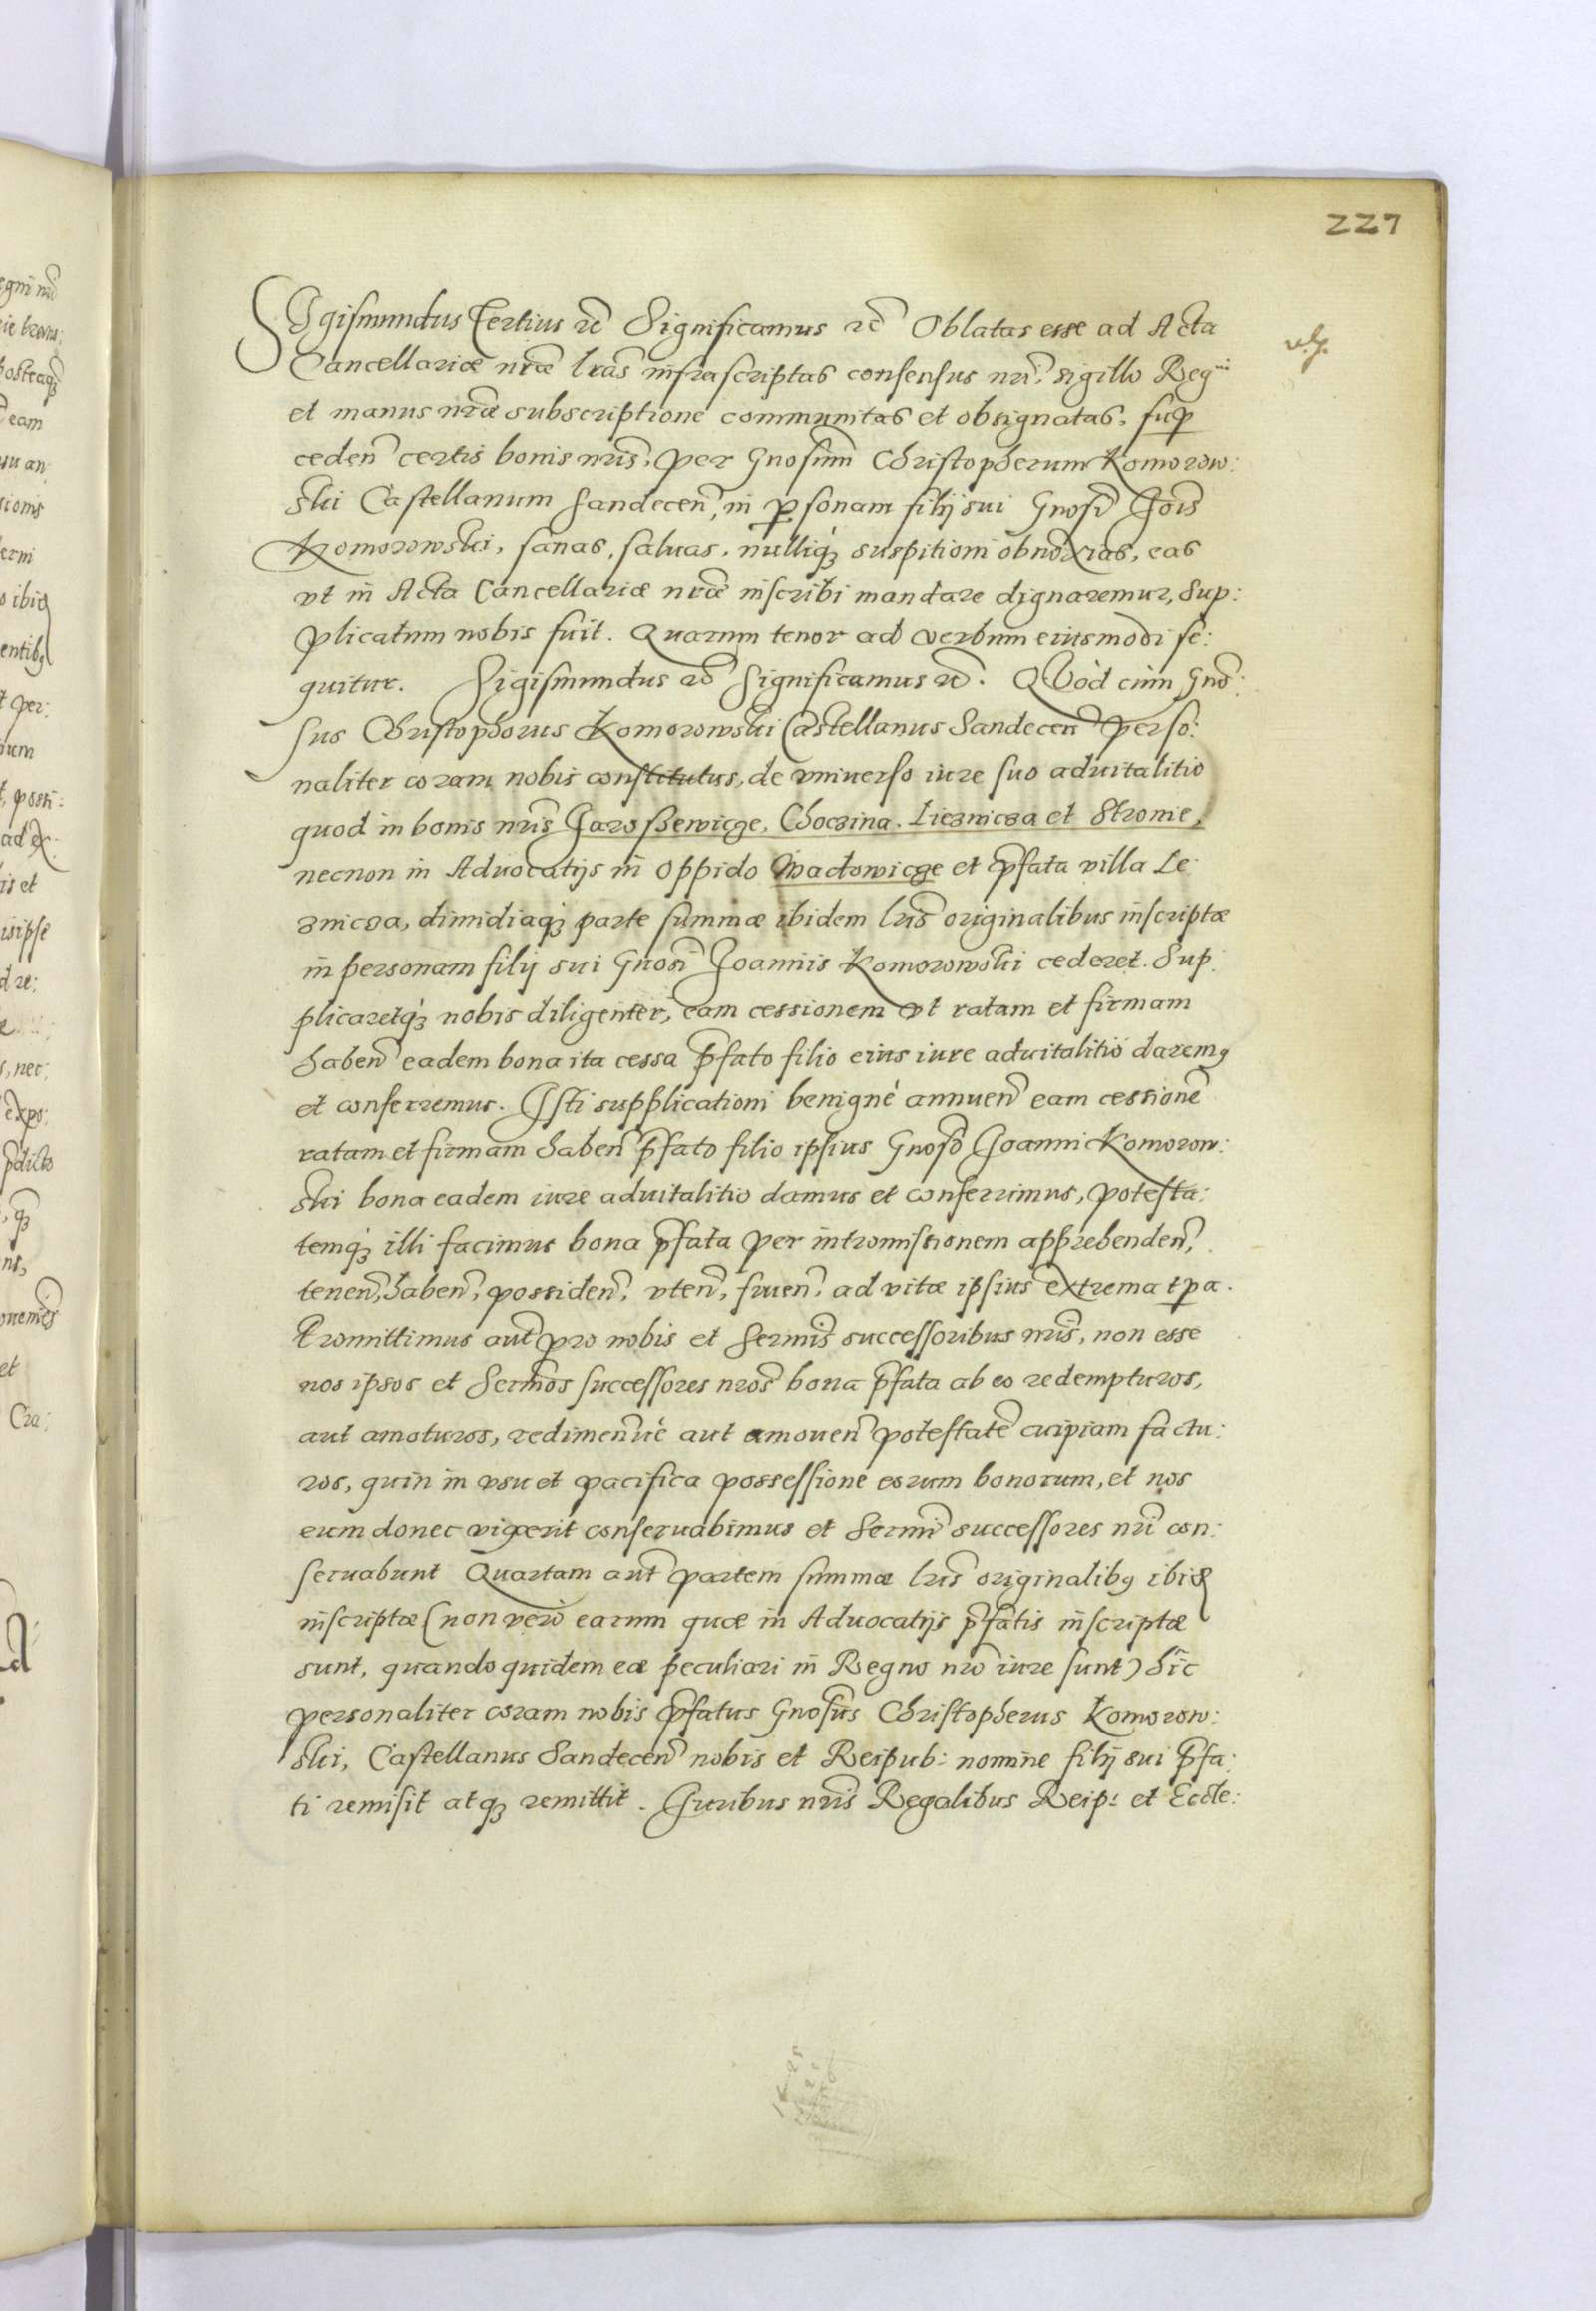 227
SIgismundus Tertius etc̃ Significamus etc̃ Oblatas esse ad Acta
Cancellariæ nr̃æ lr̃as infrascriptas consensus nr̃i, sigillo Reg:
et manus nr̃æ subscriptione communitas et obsignatas, sup̱
ceden̄ certis bonis nr̃is, per Gnosum̃ Christopherum Komorow:
ski Castellanum Sandecen̄, in p̱sonam filij sui Gnosi Jois̃
Komorowski, sanas, saluas, nulliq́ꝫ suspitioni obnoxias, eas
vt in Acta Cancellariæ nr̃æ inscribi mandare dignaremur, Sup:
plicatum nobis fuit. Quarum tenor ad verbum eiusmodi se:
quitur. Sigismundus etc̃ Significamus etc̃. QVòd cùm Gno:
sus Christophorus Komorowski Castellanus Sandecen̄ perso:
naliter coram nobis constitutus, de vniuerso iure suo aduitalitio
quod in bonis nr̃is Jaroßewicze, Choczina, Lieznicza et Stronie,
necnon in Aduocatijs in oppido Wadowicze et p̃fata villa Le:
znicza, dimidiaq́ꝫ parte summæ ibidem lr̃is originalibus inscriptæ
in personam filij sui Gnosi Joannis Komorowski cederet. Sup:
plicaretq́ꝫ nobis diligenter, eam cessionem vt ratam et firmam
haben̄ eadem bona ita cessa p̃fato filio eius iure aduitalitio daremꝰ
et conferremus. Isti supplicationi benignè annuen̄ eam cessionẽ
ratam et firmam haben̄ p̃fato filio ipsius Gnoso Joanni Komorow:
ski bona eadem iure aduitalitio damus et conferrimus, potesta:
temq́ꝫ illi facimus bona p̃fata per intromissionem apprehenden̄,
tenen̄, haben̄, possiden̄, vten̄, fruen̄, ad vitæ ipsius extrema tp̱a.
Promittimus aut̃ pro nobis et Sermis̃ successoribus nr̃is, non esse
nos ipsos et Sermos̃ successores nr̃os bona p̃fata ab eo redempturos,
aut amoturos, redimen̄uè aut amouen̄ potestatẽ cuipiam factu:
ros, quin in vsu et pacifica possessione eorum bonorum, et nos
eum donec vixerit conseruabimus et Sermĩ successores nr̃i con:
seruabunt Quartam aut̃ partem summæ lr̃is originalibꝰ ibid̃
inscriptæ (non verò earum quæ in Aduocatijs p̃fatis inscriptæ
sunt, quando quidem eæ peculiari in Regno nr̃o iure sunt) hic
personaliter coram nobis p̃fatus Gnosus̃ Christopherus Komorow:
ski, Castellanus Sandecen̄ nobis et Reipub: nomine filij sui p̃fa:
ti remisit atqꝫ remittit. Juribus nr̃is Regalibus Reip: et Eccle: